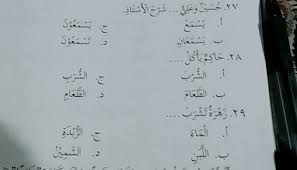 ٢٧. حُسَيْنٌ وَعَلِيٌّ ... شَرْحَ الْأُسْتَاذِ.
أ. يَسْمَعُ ج. يَسْمَعُوْنَ
ب. يَسْمَعَانِ د. تَسْمَعُوْنَ
٢٨. حَاكِمٌ يَأْكُلُ ....
أ. الشُّرْبَ ج. الشُّرْبِ
ب. الطَّعَامَ د. الطَّعَامِ
٢٩. زَهْرَةُ تَشْرَبُ ....
أ. الْمَاءَ ج. الزُّبْدَةِ
ب. اللَّبَنِ د. السَّمِيْنُ